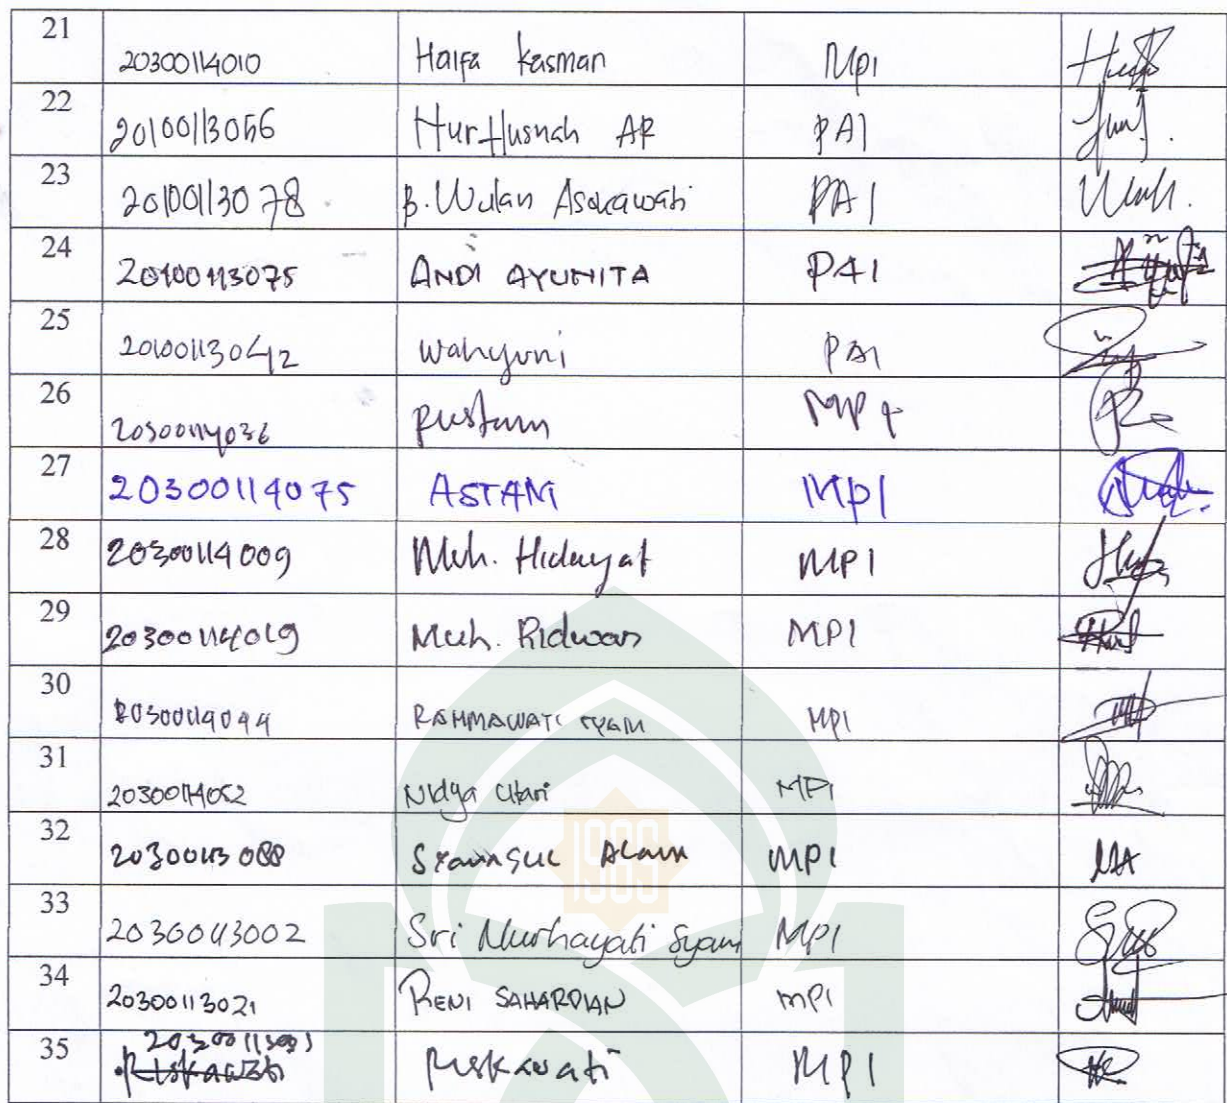 21 20300114010 Haifa Kasman MPI
22 20100113056 Nur Husnah AR PAI
23 20100113078 B. Wulan Asokawati PAI
24 20100113075 ANDI AYUNITA PAI
25 20100113042 Wahyuni PAI
26 20300114036 Rustam MPI
27 20300114075 ASTAM MPI
28 20300114009 Muh. Hidayat MPI
29 20300114019 Muh. Ridwan MPI
30 20300114044 RAHMAWATI SYAM MPI
31 20300114052 Nidya Utari MPI
32 20300113088 SYAMSUL ALAM MPI
1965
33 20300113002 Sri Nurhayati Syam MPI
34 20300113021 RENI SAHARDIAN MPI
35 Riskawati MPI